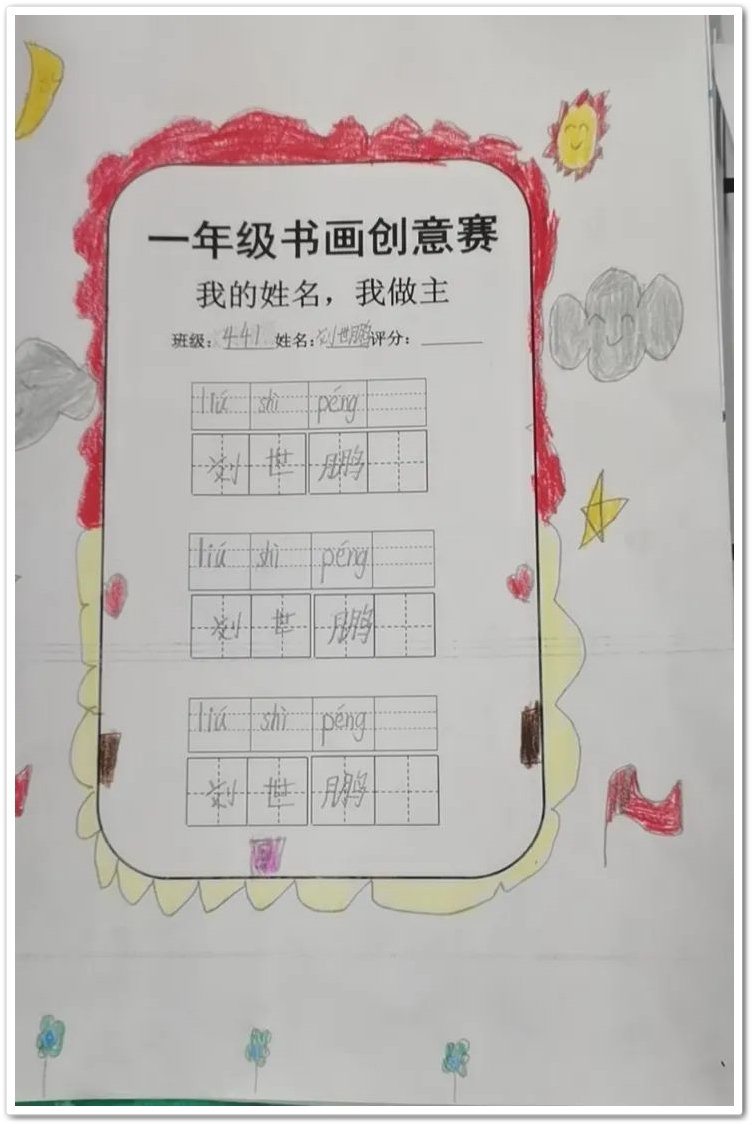 一年级书画创意赛
我的姓名，我做主
班级：441 姓名：刘世鹏 评分：
liú shì péng
刘 世 鹏
liú shì péng
刘 世 鹏
liú shì péng
刘 世 鹏